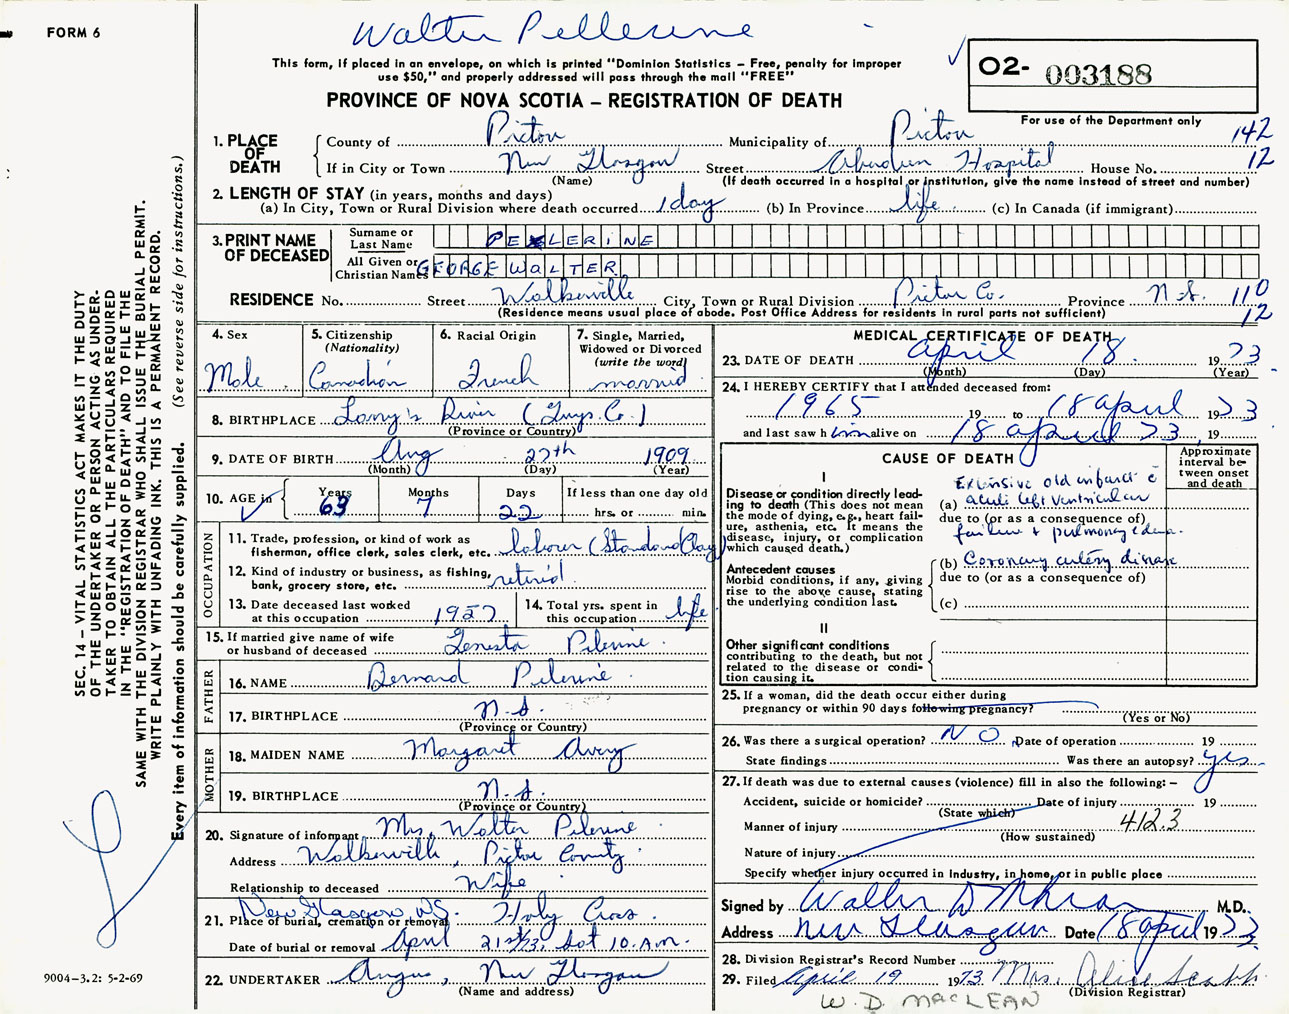 FORM 6
Walter Pellerine
This form, if placed in an envelope, on which is printed "Dominion Statistics – Free, penalty for improper
use $50," and properly addressed will pass through the mail "FREE"
PROVINCE OF NOVA SCOTIA – REGISTRATION OF DEATH
O2- 003188
For use of the Department only
1. PLACE OF DEATH
County of Pictou Municipality of Pictou 142
If in City or Town New Glasgow Street Aberdeen Hospital House No. 12
(Name) (If death occurred in a hospital or institution, give the name instead of street and number)
2. LENGTH OF STAY (in years, months and days)
(a) In City, Town or Rural Division where death occurred 1 day (b) In Province life (c) In Canada (if immigrant)
3. PRINT NAME OF DECEASED
Surname or Last Name PELLERINE
All Given or Christian Names GEORGE WALTER
RESIDENCE No. Street Walkerville City, Town or Rural Division Pictou Co. Province N.S. 110
(Residence means usual place of abode. Post Office Address for residents in rural parts not sufficient) 12
4. Sex Male
5. Citizenship (Nationality) Canadian
6. Racial Origin French
7. Single, Married, Widowed or Divorced (write the word) married
8. BIRTHPLACE Larry's River (Guys. Co.)
(Province or Country)
9. DATE OF BIRTH Aug 27th 1909
(Month) (Day) (Year)
10. AGE in Years 63 Months 7 Days 22 If less than one day old
hrs. or min.
OCCUPATION
11. Trade, profession, or kind of work as
fisherman, office clerk, sales clerk, etc. laborer (Standard Clay)
12. Kind of industry or business, as fishing,
bank, grocery store, etc. retired
13. Date deceased last worked
at this occupation 1957
14. Total yrs. spent in
this occupation life
15. If married give name of wife
or husband of deceased Genesta Pelerine
FATHER
16. NAME Bernard Pelerine
17. BIRTHPLACE N.S.
(Province or Country)
MOTHER
18. MAIDEN NAME Margaret Avery
19. BIRTHPLACE N.S.
(Province or Country)
20. Signature of informant Mrs. Walter Pelerine
Address Walkerville, Pictou County
Relationship to deceased Wife
21. Place of burial, cremation or removal New Glasgow NS. Holy Cross
Date of burial or removal April 21st/73, Sat 10 A.M.
22. UNDERTAKER Angus, New Glasgow
(Name and address)
MEDICAL CERTIFICATE OF DEATH
23. DATE OF DEATH April 18 1973
(Month) (Day) (Year)
24. I HEREBY CERTIFY that I attended deceased from:
1965 19 to 18 April 1973
and last saw h im alive on 18 April 73, 19
CAUSE OF DEATH
Approximate interval between onset and death
I
Disease or condition directly leading
to death (This does not mean
the mode of dying, e.g., heart failure,
asthenia, etc. It means the
disease, injury, or complication
which caused death.)
(a) Extensive old infarct c̄ acute left ventricular
due to (or as a consequence of)
failure & pulmonary edema.
Antecedent causes
Morbid conditions, if any, giving
rise to the above cause, stating
the underlying condition last.
(b) Coronary artery disease
due to (or as a consequence of)
(c)
II
Other significant conditions
contributing to the death, but not
related to the disease or condition
causing it.
25. If a woman, did the death occur either during
pregnancy or within 90 days following pregnancy?
(Yes or No)
26. Was there a surgical operation? NO Date of operation 19
State findings Was there an autopsy? yes
27. If death was due to external causes (violence) fill in also the following:–
Accident, suicide or homicide? Date of injury 19
(State which)
Manner of injury 412.3
(How sustained)
Nature of injury
Specify whether injury occurred in Industry, in home, or in public place
Signed by Walter D McLean M.D.
Address New Glasgow Date 18 April 1973
28. Division Registrar's Record Number
29. Filed April 19 1973 Mrs. Alice
(Division Registrar)
W. D. MACLEAN
SEC. 14 – VITAL STATISTICS ACT MAKES IT THE DUTY
OF THE UNDERTAKER OR PERSON ACTING AS UNDERTAKER
TO OBTAIN ALL THE PARTICULARS REQUIRED
IN THE "REGISTRATION OF DEATH" AND TO FILE THE
SAME WITH THE DIVISION REGISTRAR WHO SHALL ISSUE THE BURIAL PERMIT.
WRITE PLAINLY WITH UNFADING INK. THIS IS A PERMANENT RECORD.
Every item of information should be carefully supplied. (See reverse side for instructions.)
9004–3.2: 5-2-69